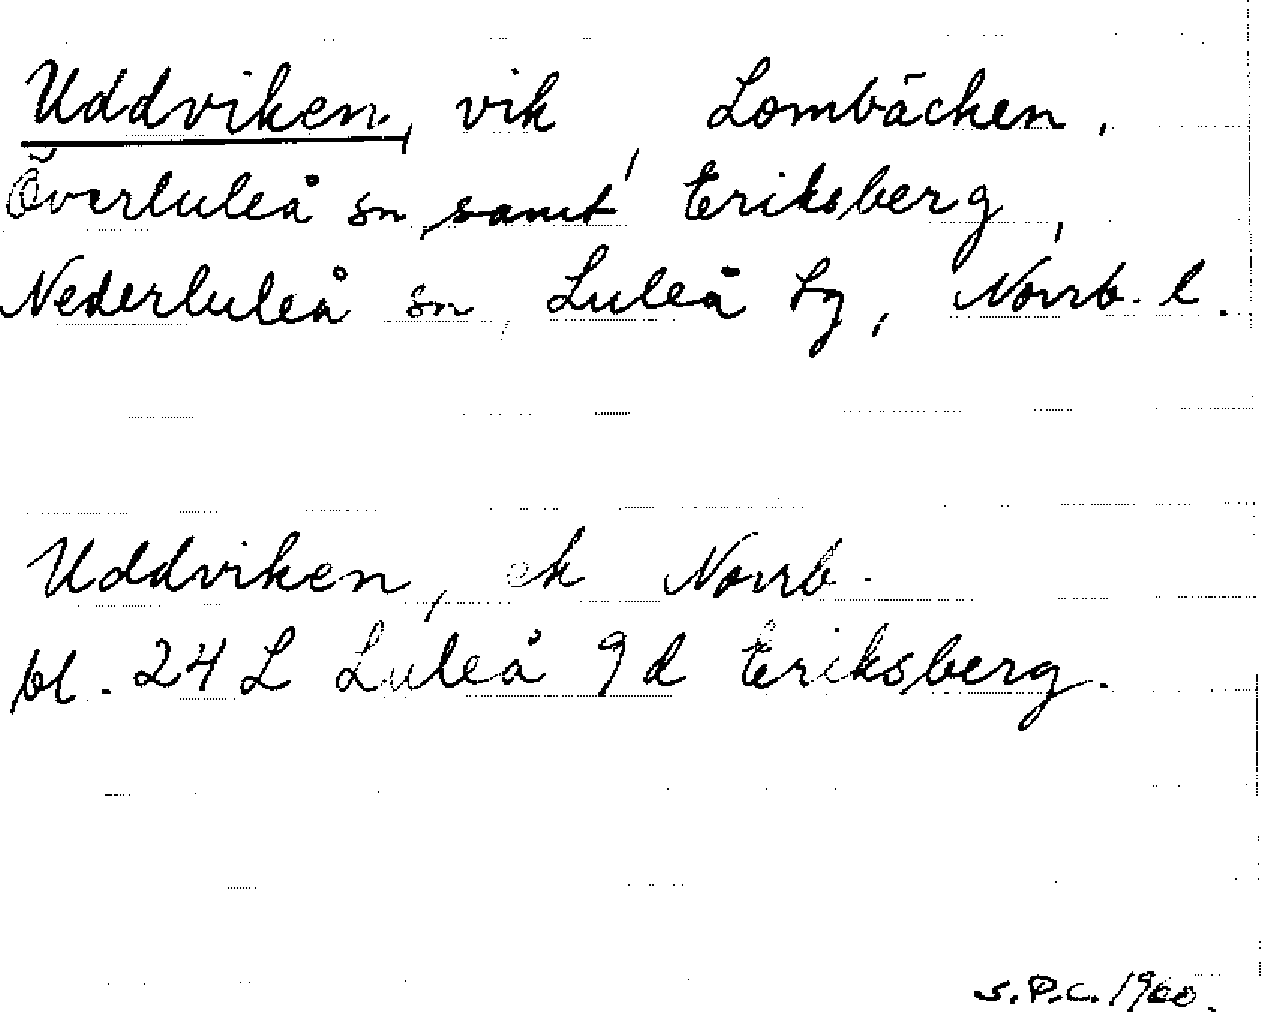 Uddviken, vik, Lombäcken,
Överluleå sn, samt Eriksberg,
Nederluleå sn, Luleå tg, Norrb. l.
Uddviken, ek Norrb.
bl. 24 L Luleå 9d Eriksberg.
S.P.C. 1960.